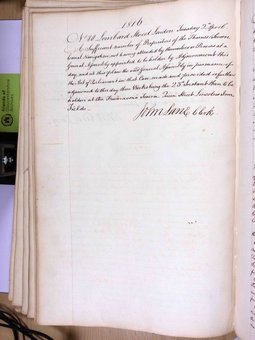 1816
No 10 Lombard Street London Tuesday 2d April
A Sufficient number of Proprietors of the Thames & Severn
Canal Navigation not being attended by themselves or Proxies at this
General Assembly appointed to be holden by Adjournment this
day, and at this place the said General Assembly is in pursuance of
the Act of Parliament in that Case made and provided
adjourned to this day three Weeks being the 23d Instant then to be
holden at the Freemasons Tavern Queen Street Lincolns Inn
Fields.
John Lane Clerk